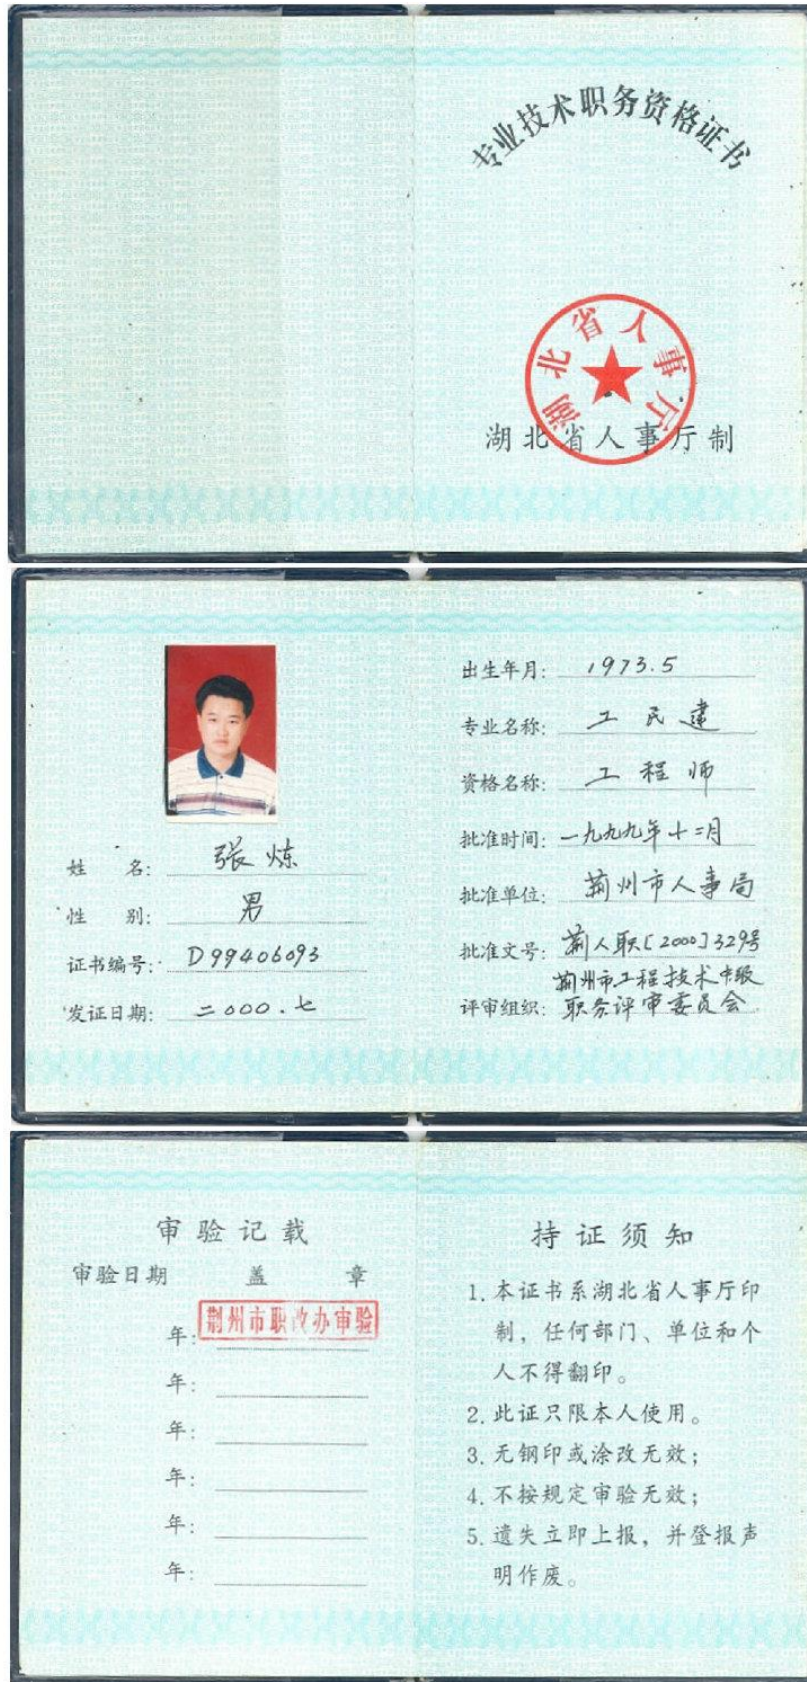 专业技术职务资格证书
湖北省人事厅
湖北省人事厅制
姓 名: 张炼
性 别: 男
证书编号: D99406093
发证日期: 二000.七
出生年月: 1973.5
专业名称: 工民建
资格名称: 工程师
批准时间: 一九九九年十二月
批准单位: 荊州市人事局
批准文号: 荊人职[2000]329号
荊州市工程技术中级
评审组织: 职务评审委员会
审验记载
审验日期 盖 章
年: 荆州市职改办审验
年:
年:
年:
年:
年:
持证须知
1. 本证书系湖北省人事厅印
制，任何部门、单位和个
人不得翻印。
2. 此证只限本人使用。
3. 无钢印或涂改无效；
4. 不按规定审验无效；
5. 遗失立即上报，并登报声
明作废。